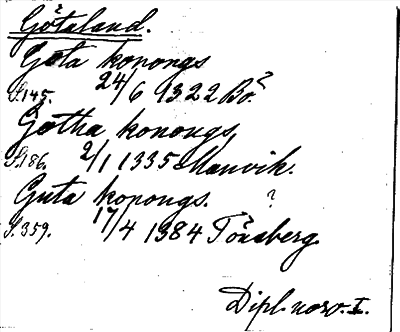 Götaland.
Gøta konongs
S.145. 24/6 1322 Bö?
Gøtha konongs,
S.186. 2/1 1335 Manvik.
Guta konongs. ?
S.359. 17/4 1384 Tönsberg.
Dipl. norv. I.